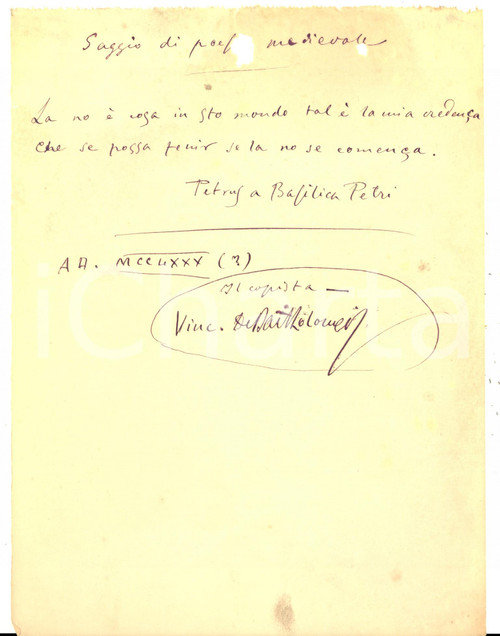 Saggio di poesia medievale
La no è cosa in sto mondo tal è la mia credença
che se possa fenir se la no se comença.
Petrus a Basilica Petri
AD. MCCLXXX (?)
Il copista —
Vinc. De Bartholomeis
iCharta